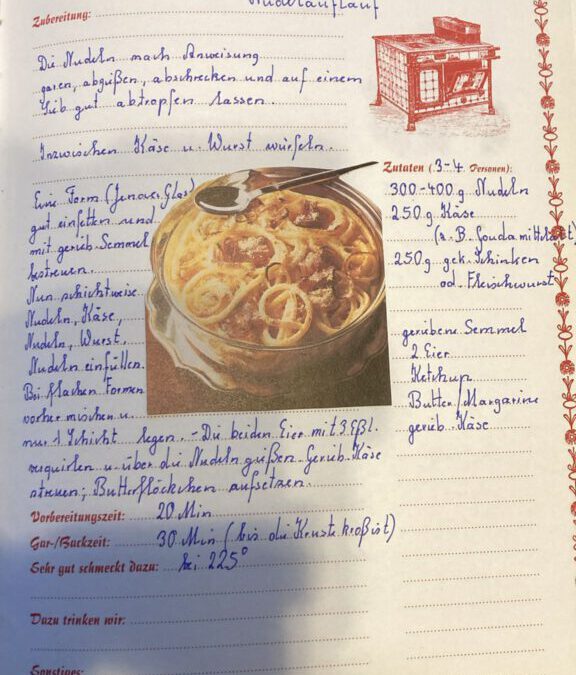 Nudelauflauf
Zubereitung:
Die Nudeln nach Anweisung
garen, abgießen, abschrecken und auf einem
Sieb gut abtropfen lassen.
Inzwischen Käse u. Wurst würfeln.
Eine Form (Jenaer Glas)
gut einfetten und
mit gerieb. Semmel
bestreuen.
Nun schichtweise
Nudeln, Käse,
Nudeln, Wurst,
Nudeln einfüllen.
Bei flachen Formen
vorher mischen u.
nur 1 Schicht legen. - Die beiden Eier mit 3 Eßl.
verquirlen u. über die Nudeln gießen. Gerieb. Käse
streuen; Butterflöckchen aufsetzen.
Vorbereitungszeit: 20 Min
Gar-/Backzeit: 30 Min (bis die Kruste kroß ist)
Sehr gut schmeckt dazu: bei 225°
Dazu trinken wir:
Sonstiges:
Zutaten (3-4 Personen):
300-400 g Nudeln
250 g Käse
(z. B. Gouda mittelalt)
250 g gek. Schinken
od. Fleischwurst
geriebene Semmel
2 Eier
Ketchup
Butter/Margarine
gerieb. Käse